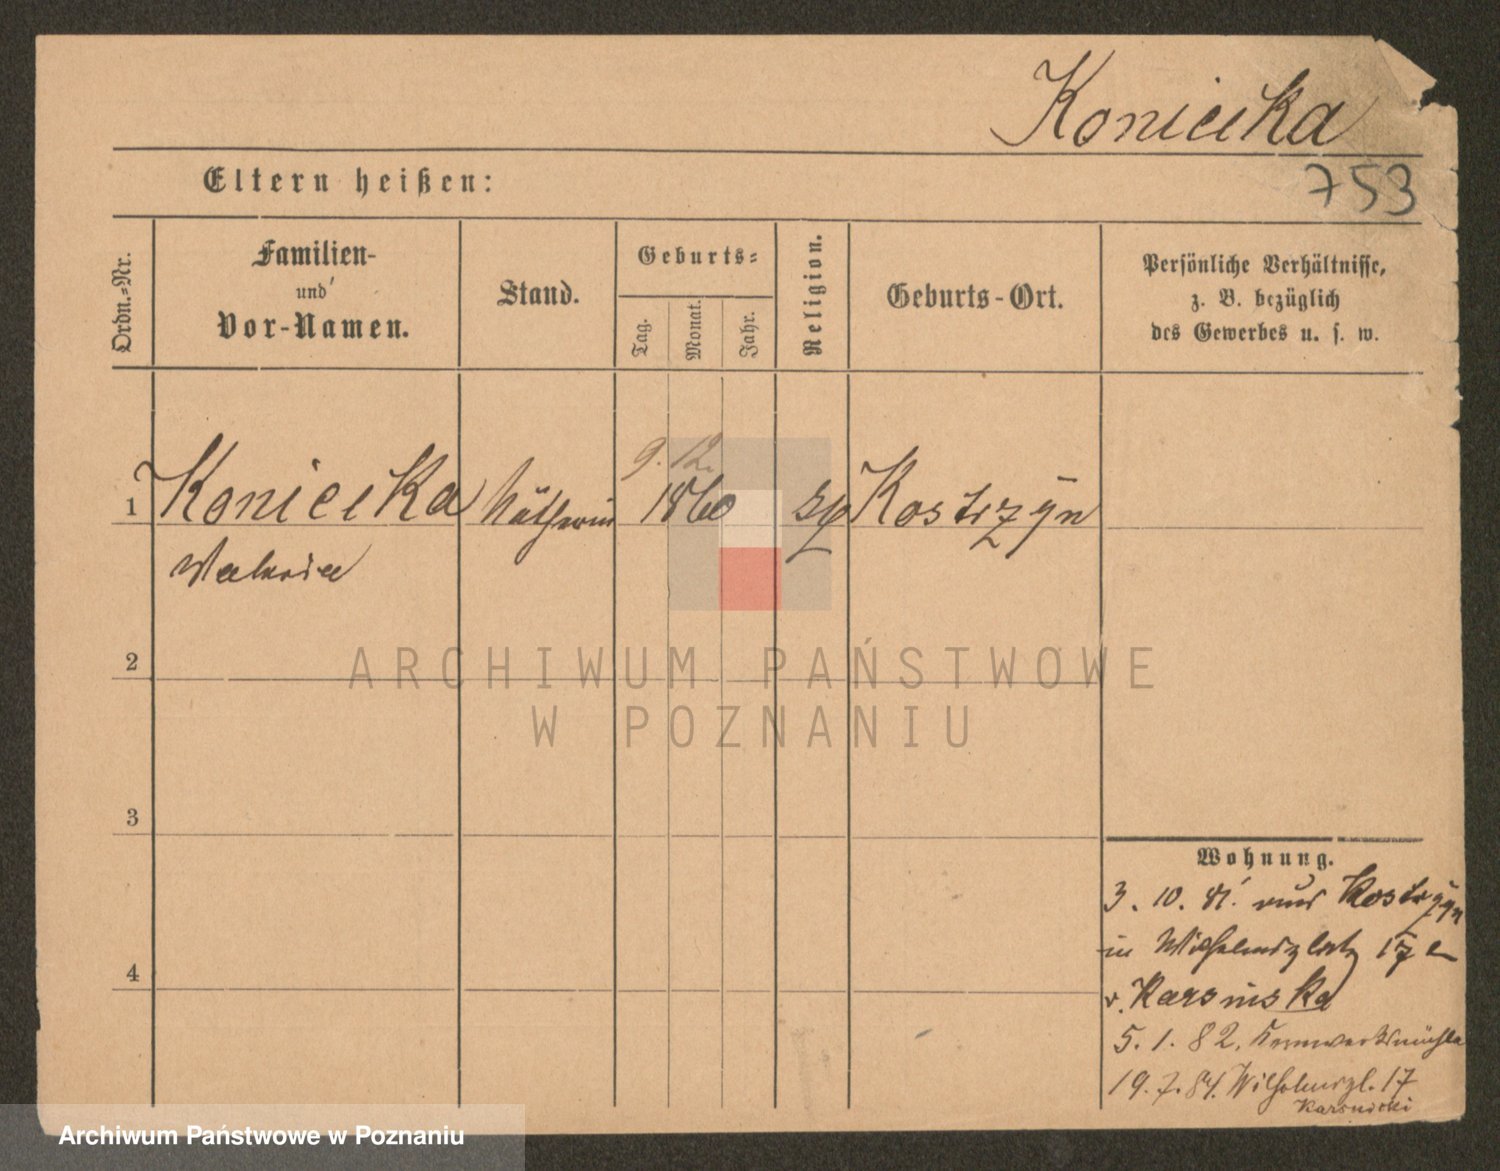 Konieika
753
Eltern heißen:
Ordn.-Nr.
Familien-
und
Vor-Namen.
Stand.
Geburts-
Tag.
Monat.
Jahr.
Religion.
Geburts-Ort.
Persönliche Verhältnisse,
z. B. bezüglich
des Gewerbes u. s. w.
9. 12.
1 Konieika Nätherin 1860 Kostrzyn
Valeria
2
ARCHIWUM PAŃSTWOWE
W POZNANIU
3
4
Wohnung.
3. 10. 81. aus Kostrzyn
in Wilhelmsplatz 17
v. Karsniska
5. 1. 82. Kernwerksmühle
19. 7. 84. Wilhelmspl. 17
Karsnicki
Archiwum Państwowe w Poznaniu